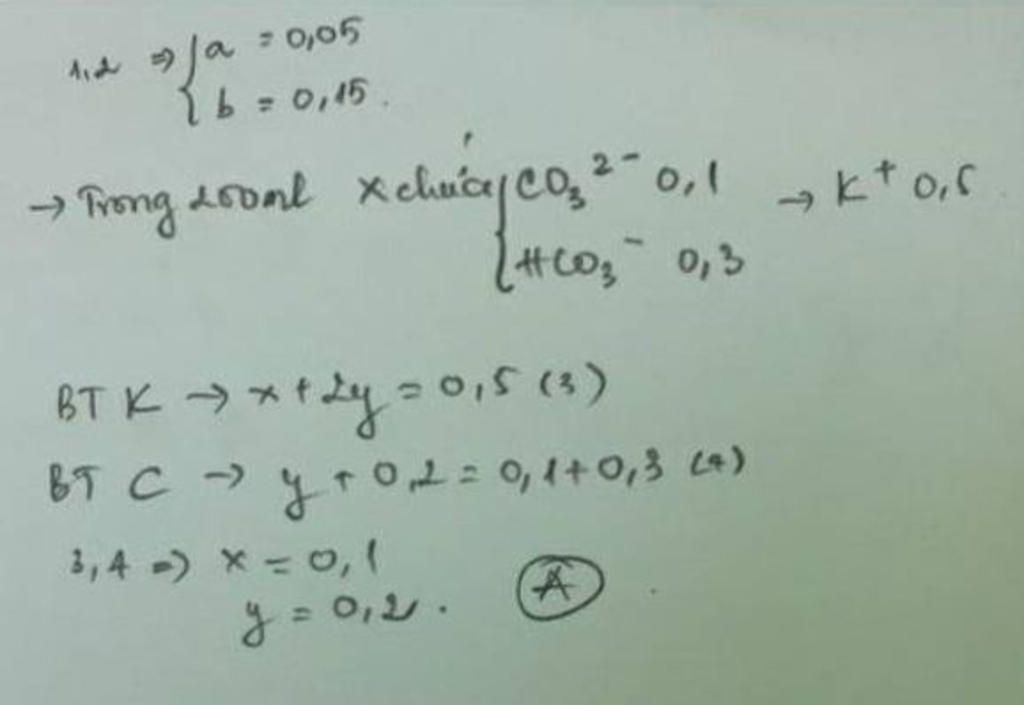 1,2 ⇒ { a = 0,05
b = 0,15.
→ Trong 200ml X chứa { CO₃²⁻ 0,1 → K⁺ 0,5
HCO₃⁻ 0,3
BT K → x + 2y = 0,5 (3)
BT C → y + 0,2 = 0,1 + 0,3 (4)
3,4 ⇒ x = 0,1
y = 0,2. A